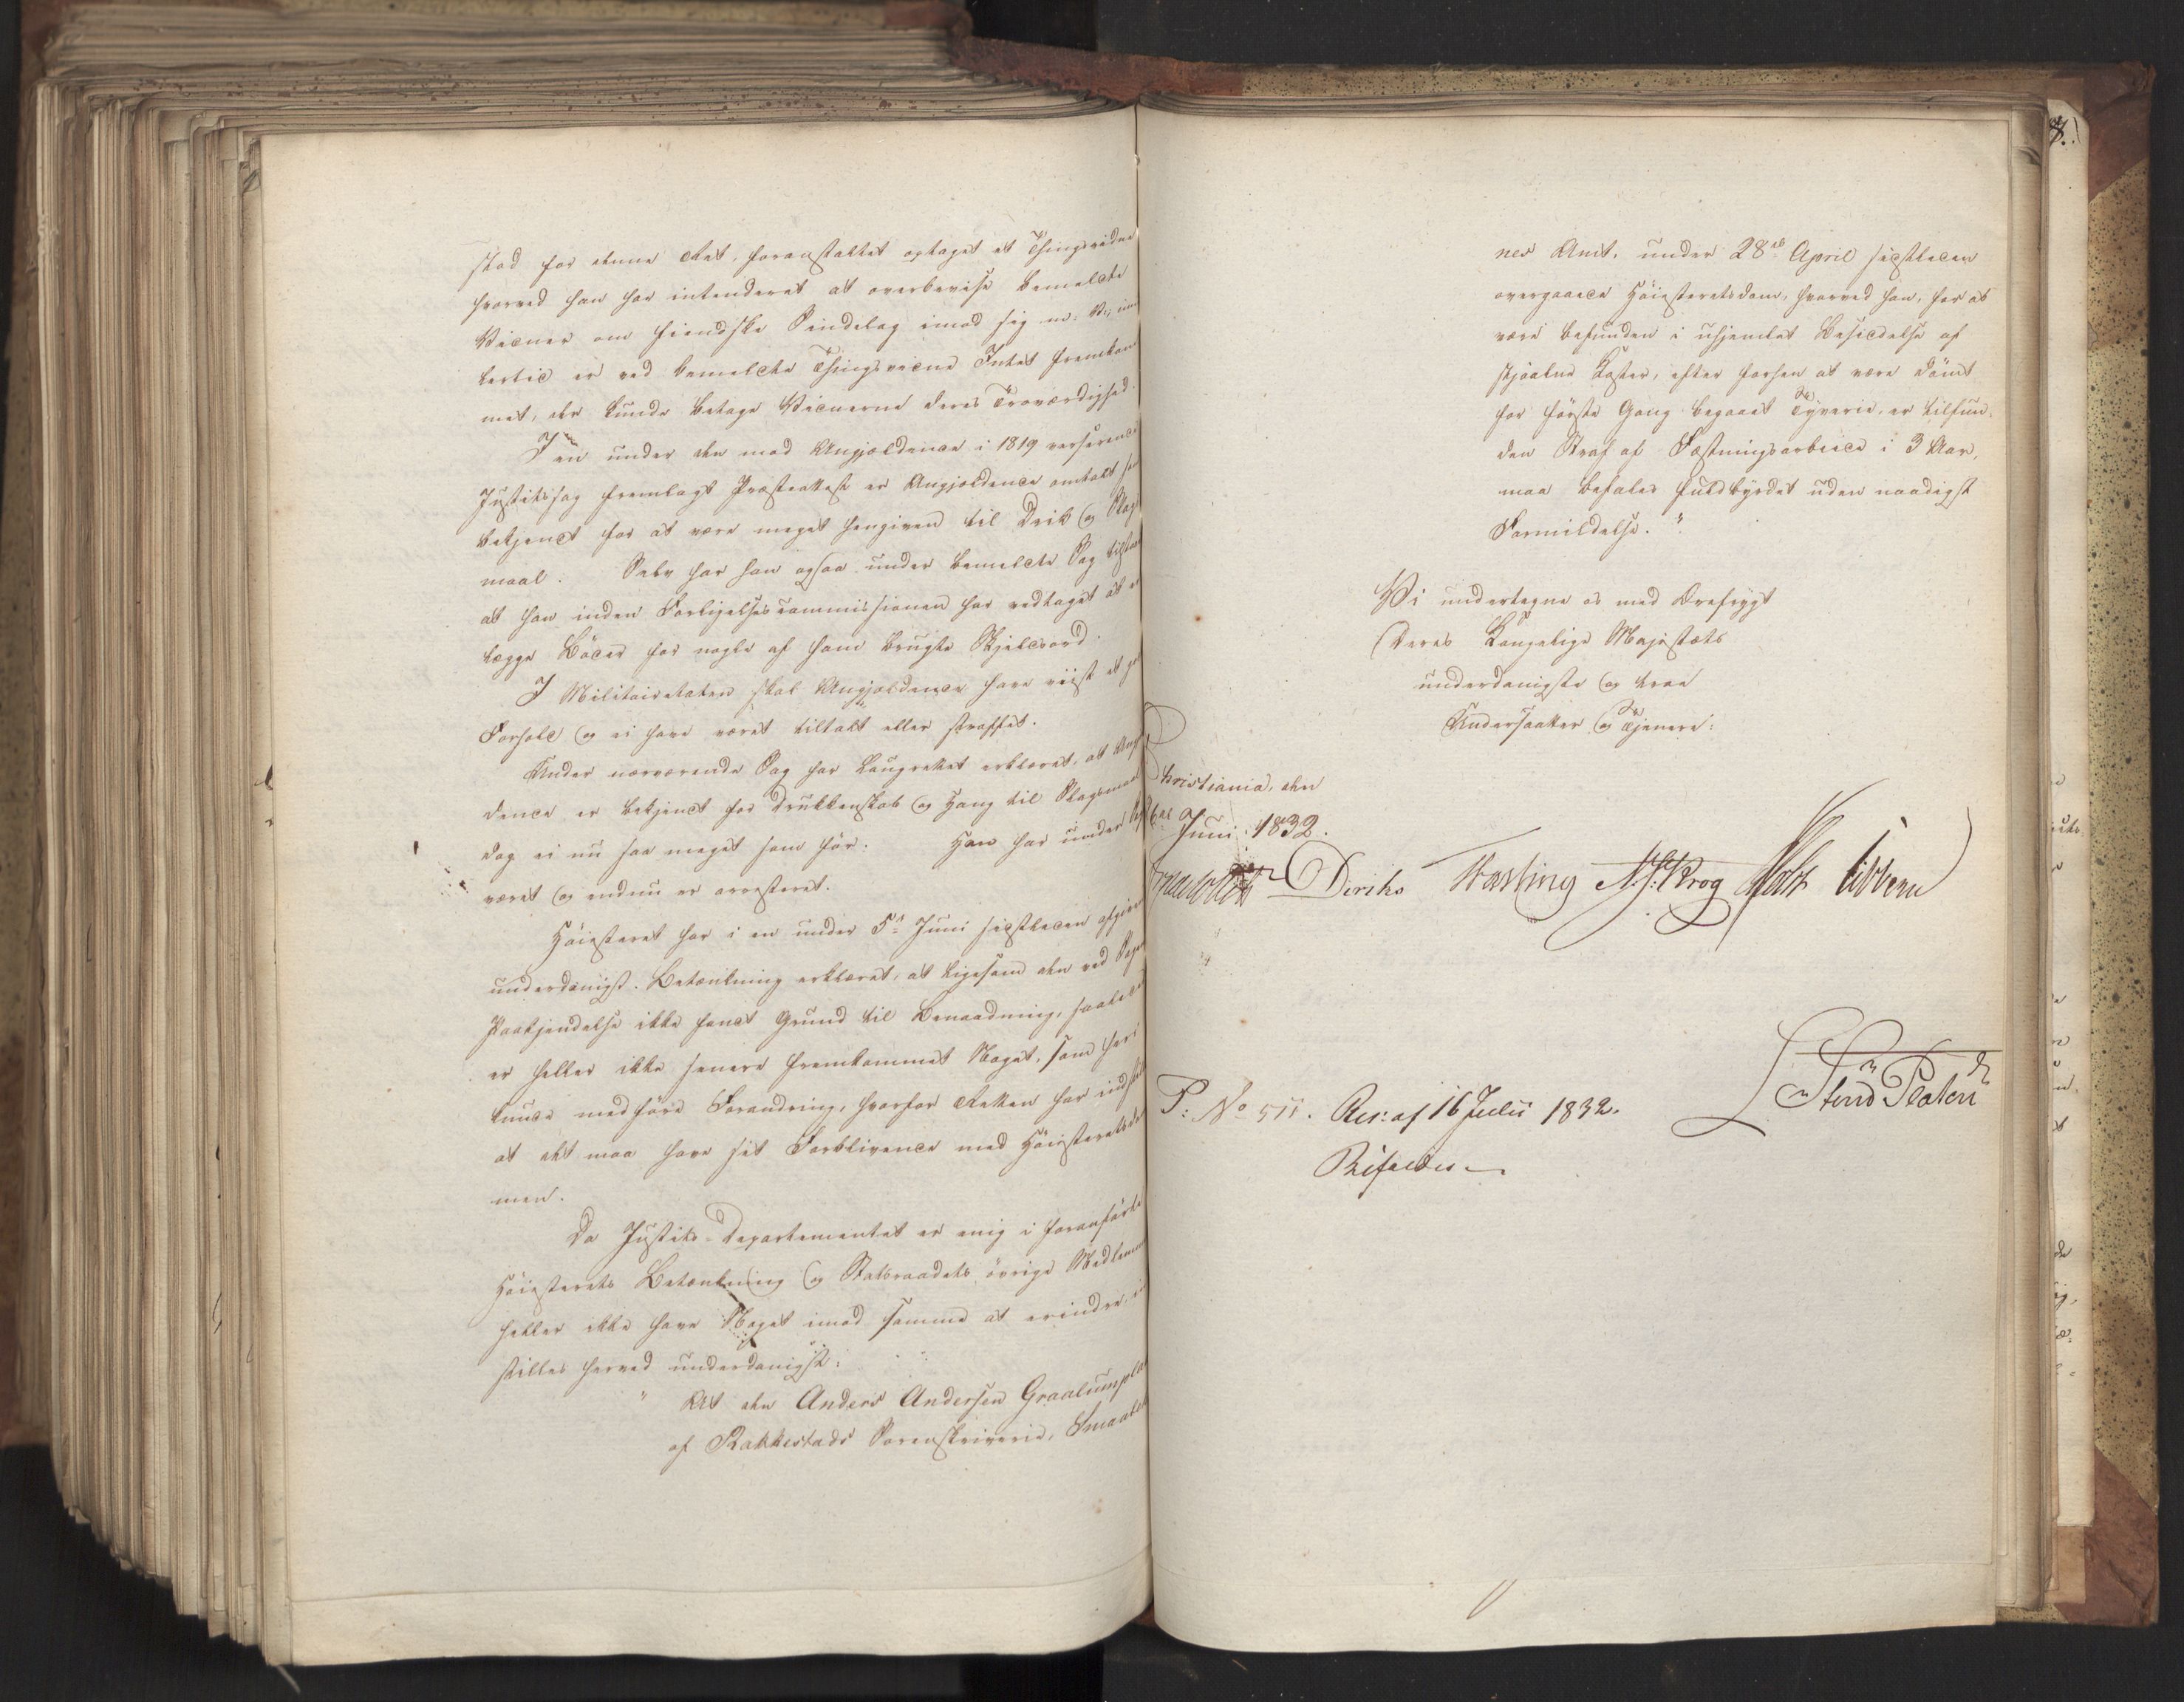 stod for denne Act, foranstaltet optaget et Thingsvidne
hvorved han har intenderet at overbevise bemeldte
Vidner om fiendske Sindelag imod sig
lertid er ved bemeldte Thingsvidne Intet fremkom
met, der kunde betage Vidnerne deres Troværdighed.
I en under den mod Angjeldende i 1819 verserende
Justitssag fremlagt Præsteattest er Angjeldende omtalt som
bekjendt for at være meget hengiven til Drik og Slags
maal. Selv har han ogsaa under bemeldte Sag tilstaaet
at han inden Forligelsescommissionen har vedtaget at er
lægge Böder for nogle af ham brugte Skjeldsord.
I Militairetaten skal Angjeldende have viist et godt
Forhold og ei have været tiltalt eller straffet.
Under nærværende Sag har Laugrettet erklæret, at Angjel
dende er bekjendt for Drukkenskab og Hang til Slagsmaal
dog ei nu saa meget som för. Han har under
været og endnu er arresteret.
Höiesteret har i en under 5te Juni sidstleden afgiven
underdanigst Betænkning erklæret, at ligesom den ved Sagens
Paakjendelse ikke fandt Grund til Benaadning, saaledes
er heller ikke senere fremkommet Noget, som heri
kunde medföre Forandring, hvorfor Retten har indstillet
at det maa have sit Forblivende med Höiesteretsdom
men.
Da Justits-Departementet er enig i foranförte
Höiesterets Betænkning og Statsraadets övrige Medlemmer
heller ikke have Noget imod samme at erindre, ind
stilles herved underdanigst:
" At den Anders Andersen Graalumpla
af Rakkestads Sorenskriverie, Smaaleh
nes Amt, under 28de April sidstleden
overgaaede Höiesteretsdom, hvorved han, for at
være befunden i uhjemlet Besiddelse af
stjaalne Koster, efter forhen at være dömt
for förste Gang begaaet Tyverie, er tilfun-
den Straf af Fæstningsarbeide i 3 Aar,
maa befales fuldbyrdet uden naadigst
Formildelse."
Vi undertegne os med Ærefrygt
Deres Kongelige Majestæts
underdanigste og troe
Undersaatter og Tjenere:
Christiania, den
Juni 1832.
Diriks Vasling N. J. Krog Holst Vibberu
Steud Platen
P: No 511. Res: af 16 Julii 1832.
Bifaldes